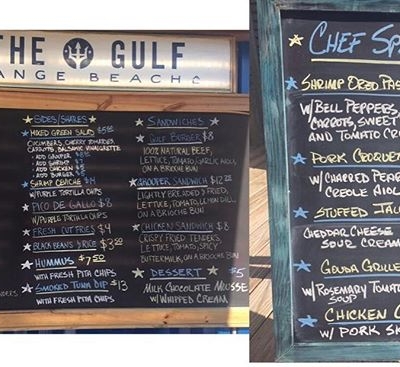 THE GULF
ANGE BEACH
SIDES/SHARES
MIXED GREEN SALAD
CUCUMBERS, CHERRY TOMATOES
BALSAMIC VINAIGRETTE
+ ADD GROUPER
+ ADD SHRIMP
+ ADD CHICKEN
+ ADD BURGER
SHRIMP CEVICHE $14
W/ PURPLE TORTILLA CHIPS
PICO DE GALLO $8
W/ PURPLE TORTILLA CHIPS
FRESH CUT FRIES $4
BLACK BEANS & RICE
HUMMUS $7.50
WITH FRESH PITA CHIPS
SMOKED TUNA DIP $13
WITH FRESH PITA CHIPS
SANDWICHES
GULF BURGER $8
100% NATURAL BEEF,
LETTUCE, TOMATO, GARLIC AIOLI,
ON A BRIOCHE BUN
GROUPER SANDWICH
LIGHTLY BREADED & FRIED,
LETTUCE, TOMATO, LEMON DILL
ON A BRIOCHE BUN
CHICKEN SANDWICH $8
CRISPY FRIED TENDERS,
LETTUCE, TOMATO, SPICY
BUTTERMILK, ON A BRIOCHE BUN
DESSERT $5
MILK CHOCOLATE MOUSSE
W/ WHIPPED CREAM
CHEF SP
SHRIMP ORZO PAS
W/ BELL PEPPERS,
CARROTS, SWEET
AND TOMATO CR
PORK CROQUE
W/ CHARRED PEAR
CREOLE AIOL
STUFFED JAL
CHEDDAR CHEESE
SOUR CREAM
GOUDA GRILLE
W/ ROSEMARY TOMAT
SOUP
CHICKEN
W/ PORK SK